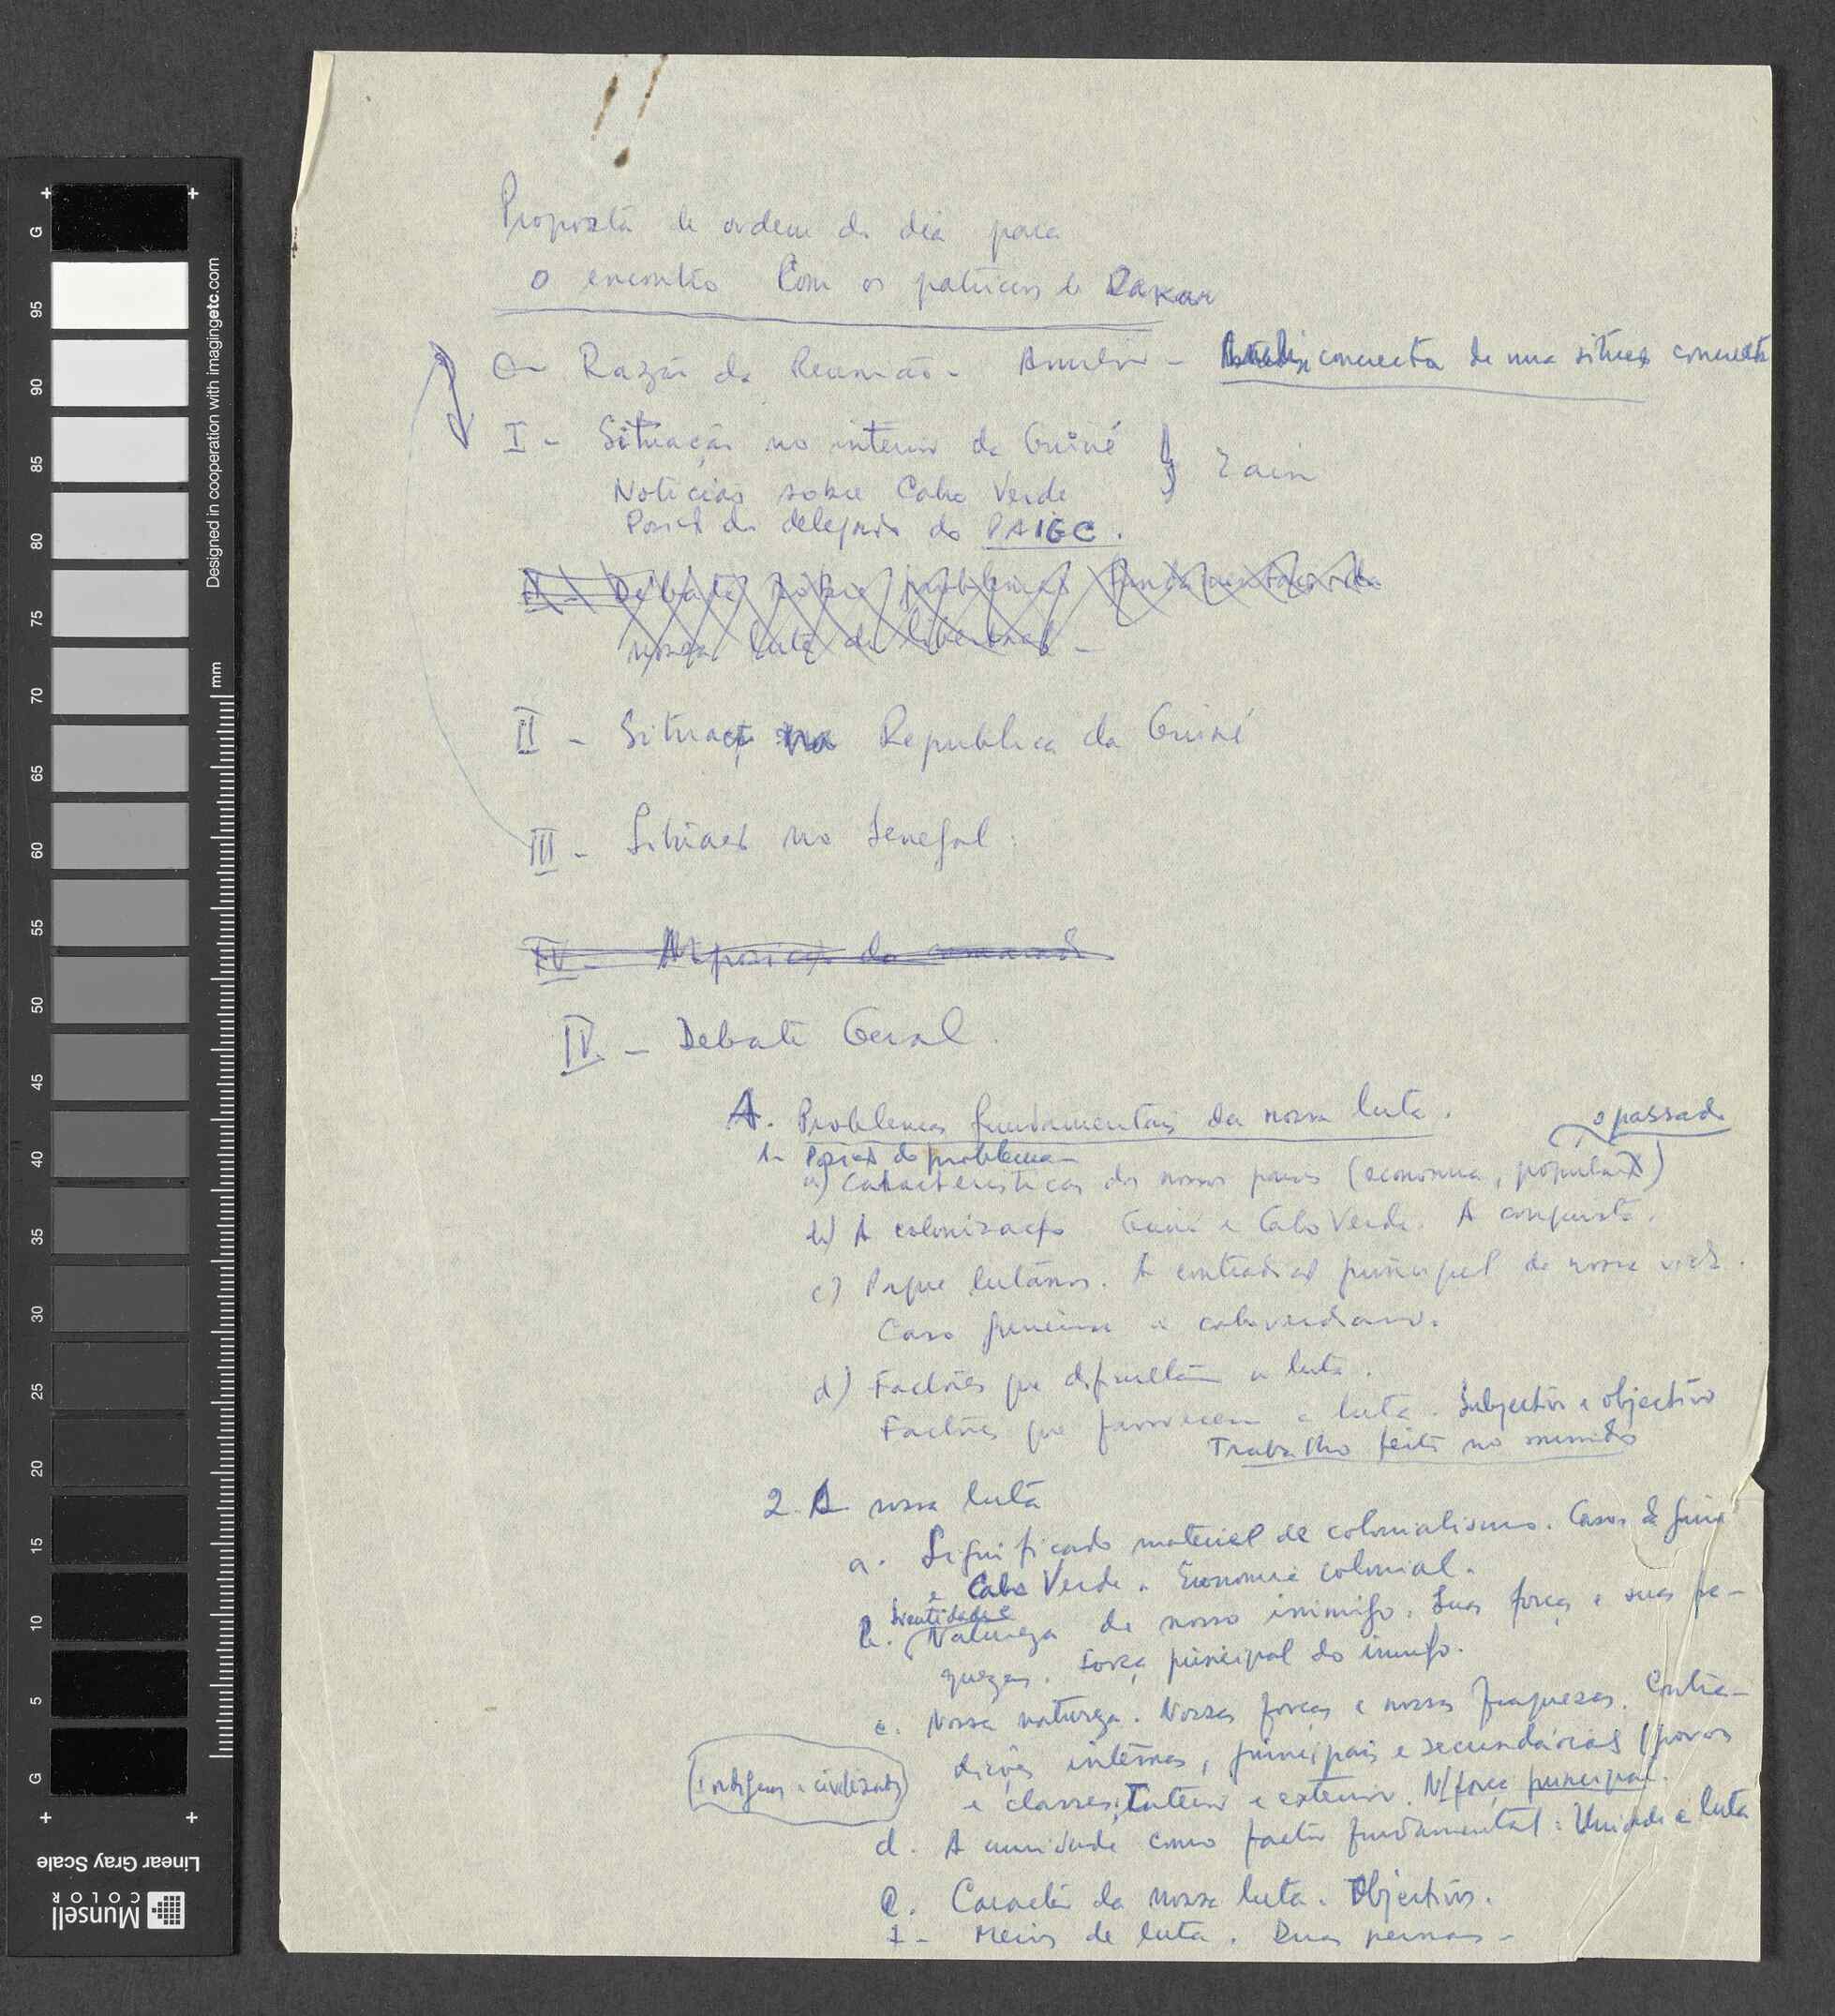 Proposta de ordem do dia para
o encontro com os patrícios de Dakar
0- Razão da Reunião - Amílcar - concreta de uma situaç concreta
I - Situação no interior da Guiné
Notícias sobre Cabo Verde
Posiç da delegação do PAIGC.
II - Debate sobre problemas fundamentais da
nossa luta de libertaç -
II - Situaç na Republica da Guiné
III - Situaç no Senegal.
IV - A posição do
IV. - Debate Geral.
A. Problemas fundamentais da nossa luta.
o passado
1- Posiç do problema
a) Caracteristicas dos nossos paises (economia, populaç)
b) A colonização Guiné e Cabo Verde. A conquista.
c) Porque lutamos. A contradiç principal da nossa vida.
Caso guineense e caboverdiano.
d) Factores que dificultam a luta.
Factores que favorecem a luta. Subjectivo e objectivo
Trabalho feito no
2. A nossa luta
a. Significado material de colonialismo. Casos da Guiné
e Cabo Verde. Economia colonial.
Identidade e
b. Natureza do nosso inimigo. Suas forças e suas fra-
quezas. Força principal do inimigo.
c. Nossa natureza. Nossas forças e nossas fraquezas. Contra-
dições internas, principais e secundárias (povos
(indígenas e civilizados)
e classes. Interior e exterior. N/força principal.
d. A unidade como factor fundamental: Unidade e luta
e. Caracter da nossa luta. Objectivos.
f - Meios de luta. Duas pernas -
G 95 90 85 80 75 70 65 60 55 50 45 40 35 30 25 20 15 10 5 G
mm
Designed in cooperation with imagingetc.com
Linear Gray Scale
Munsell
COLOR